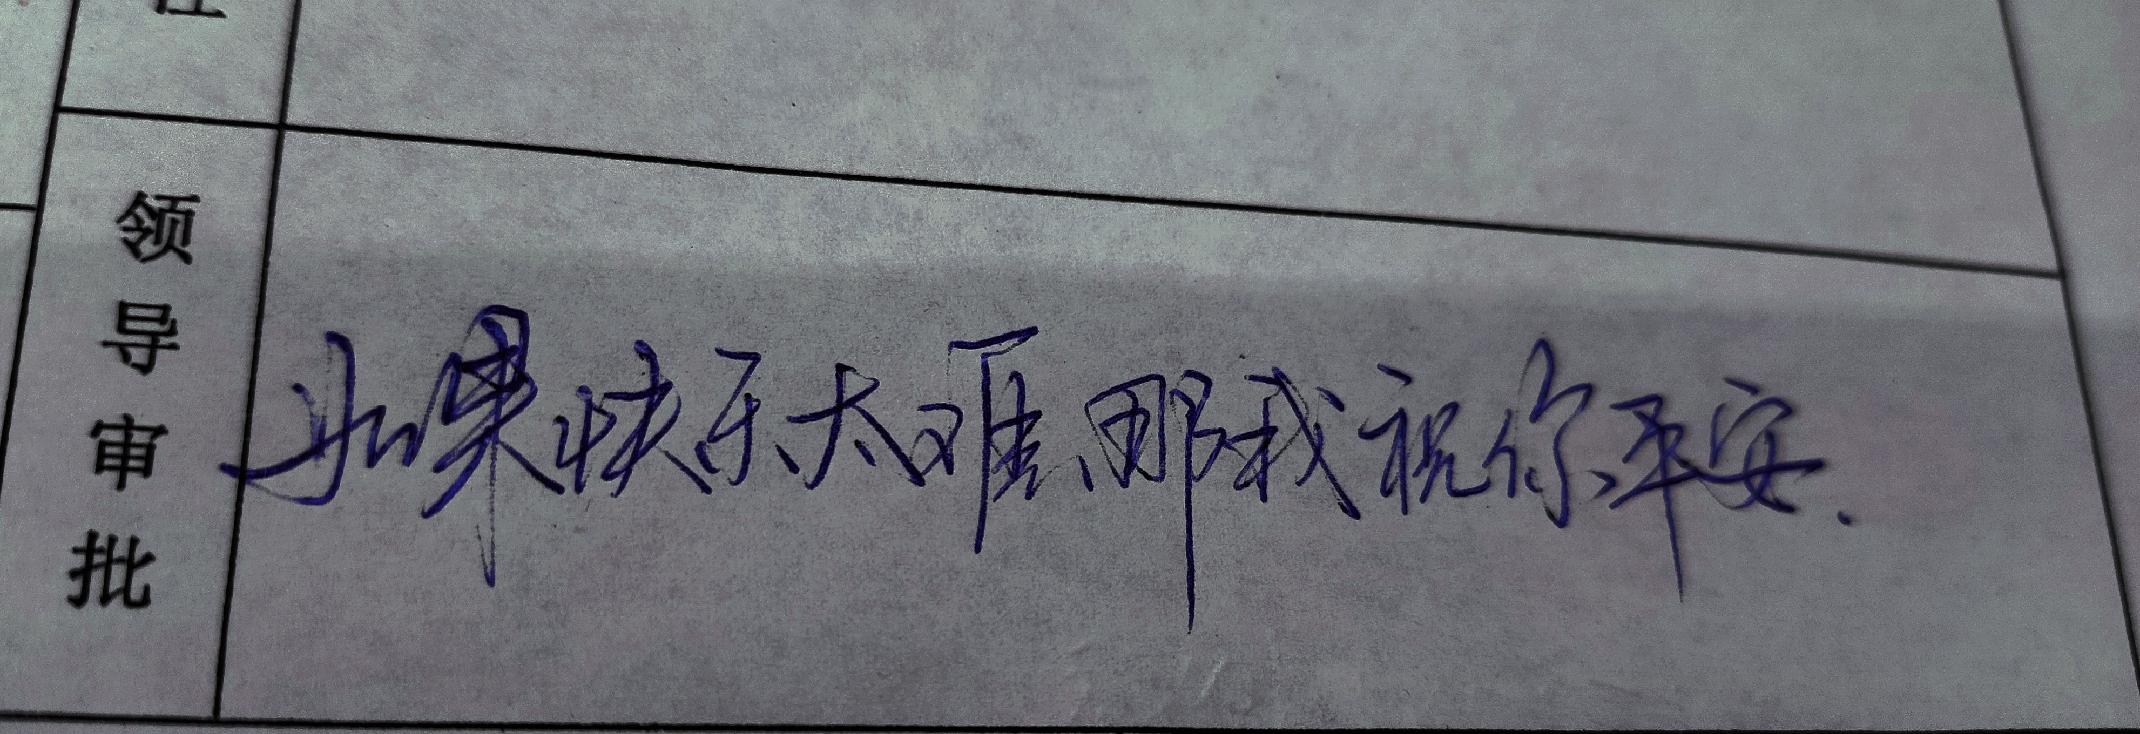 领导审批
如果快乐太难、那我祝你平安.